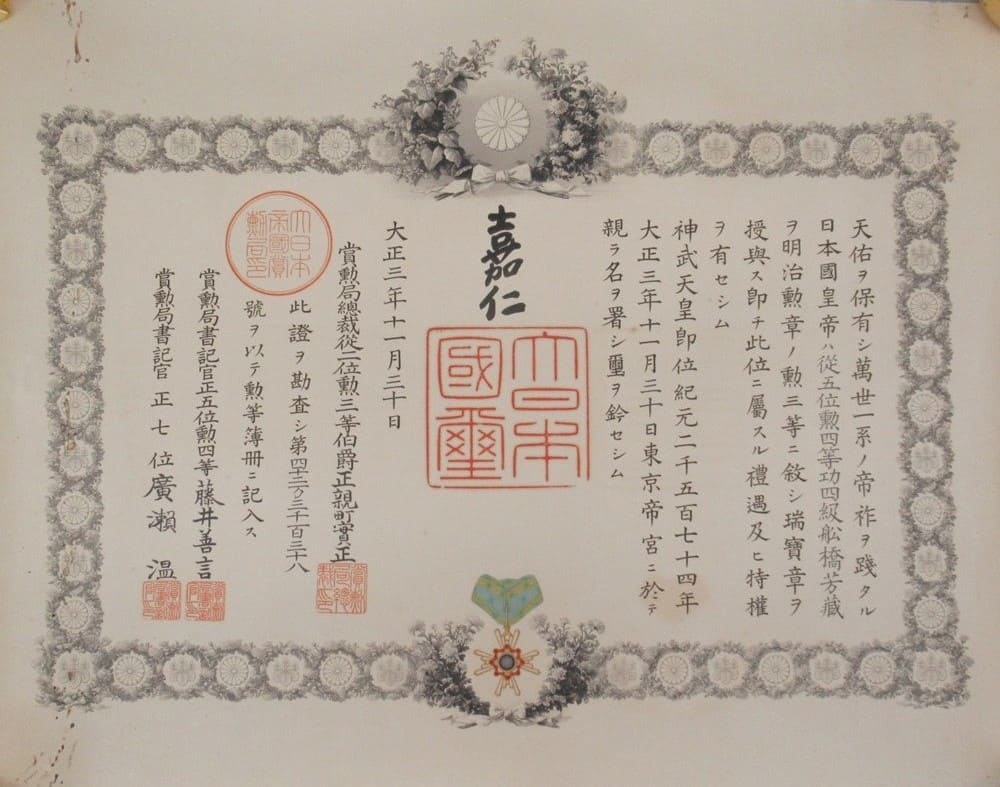 天佑ヲ保有シ萬世一系ノ帝祚ヲ踐タル
日本國皇帝ハ從五位勲四等功四級舩橋芳藏
ヲ明治勲章ノ勲三等ニ敘シ瑞寶章ヲ
授與ス即チ此位ニ屬スル禮遇及ヒ特權
ヲ有セシム
神武天皇即位紀元二千五百七十四年
大正三年十一月三十日東京帝宮ニ於テ
親ラ名ヲ署シ璽ヲ鈐セシム
嘉仁
大日本
國璽
大正三年十一月三十日
賞勲局總裁從二位勲三等伯爵正親町實正
大日本
帝國賞
勲局印
此證ヲ勘査シ第四十二万三千百三十八
號ヲ以テ勲等簿冊ニ記入ス
賞勲局書記官正五位勲四等藤井善言
賞勲局書記官正七位廣瀬温